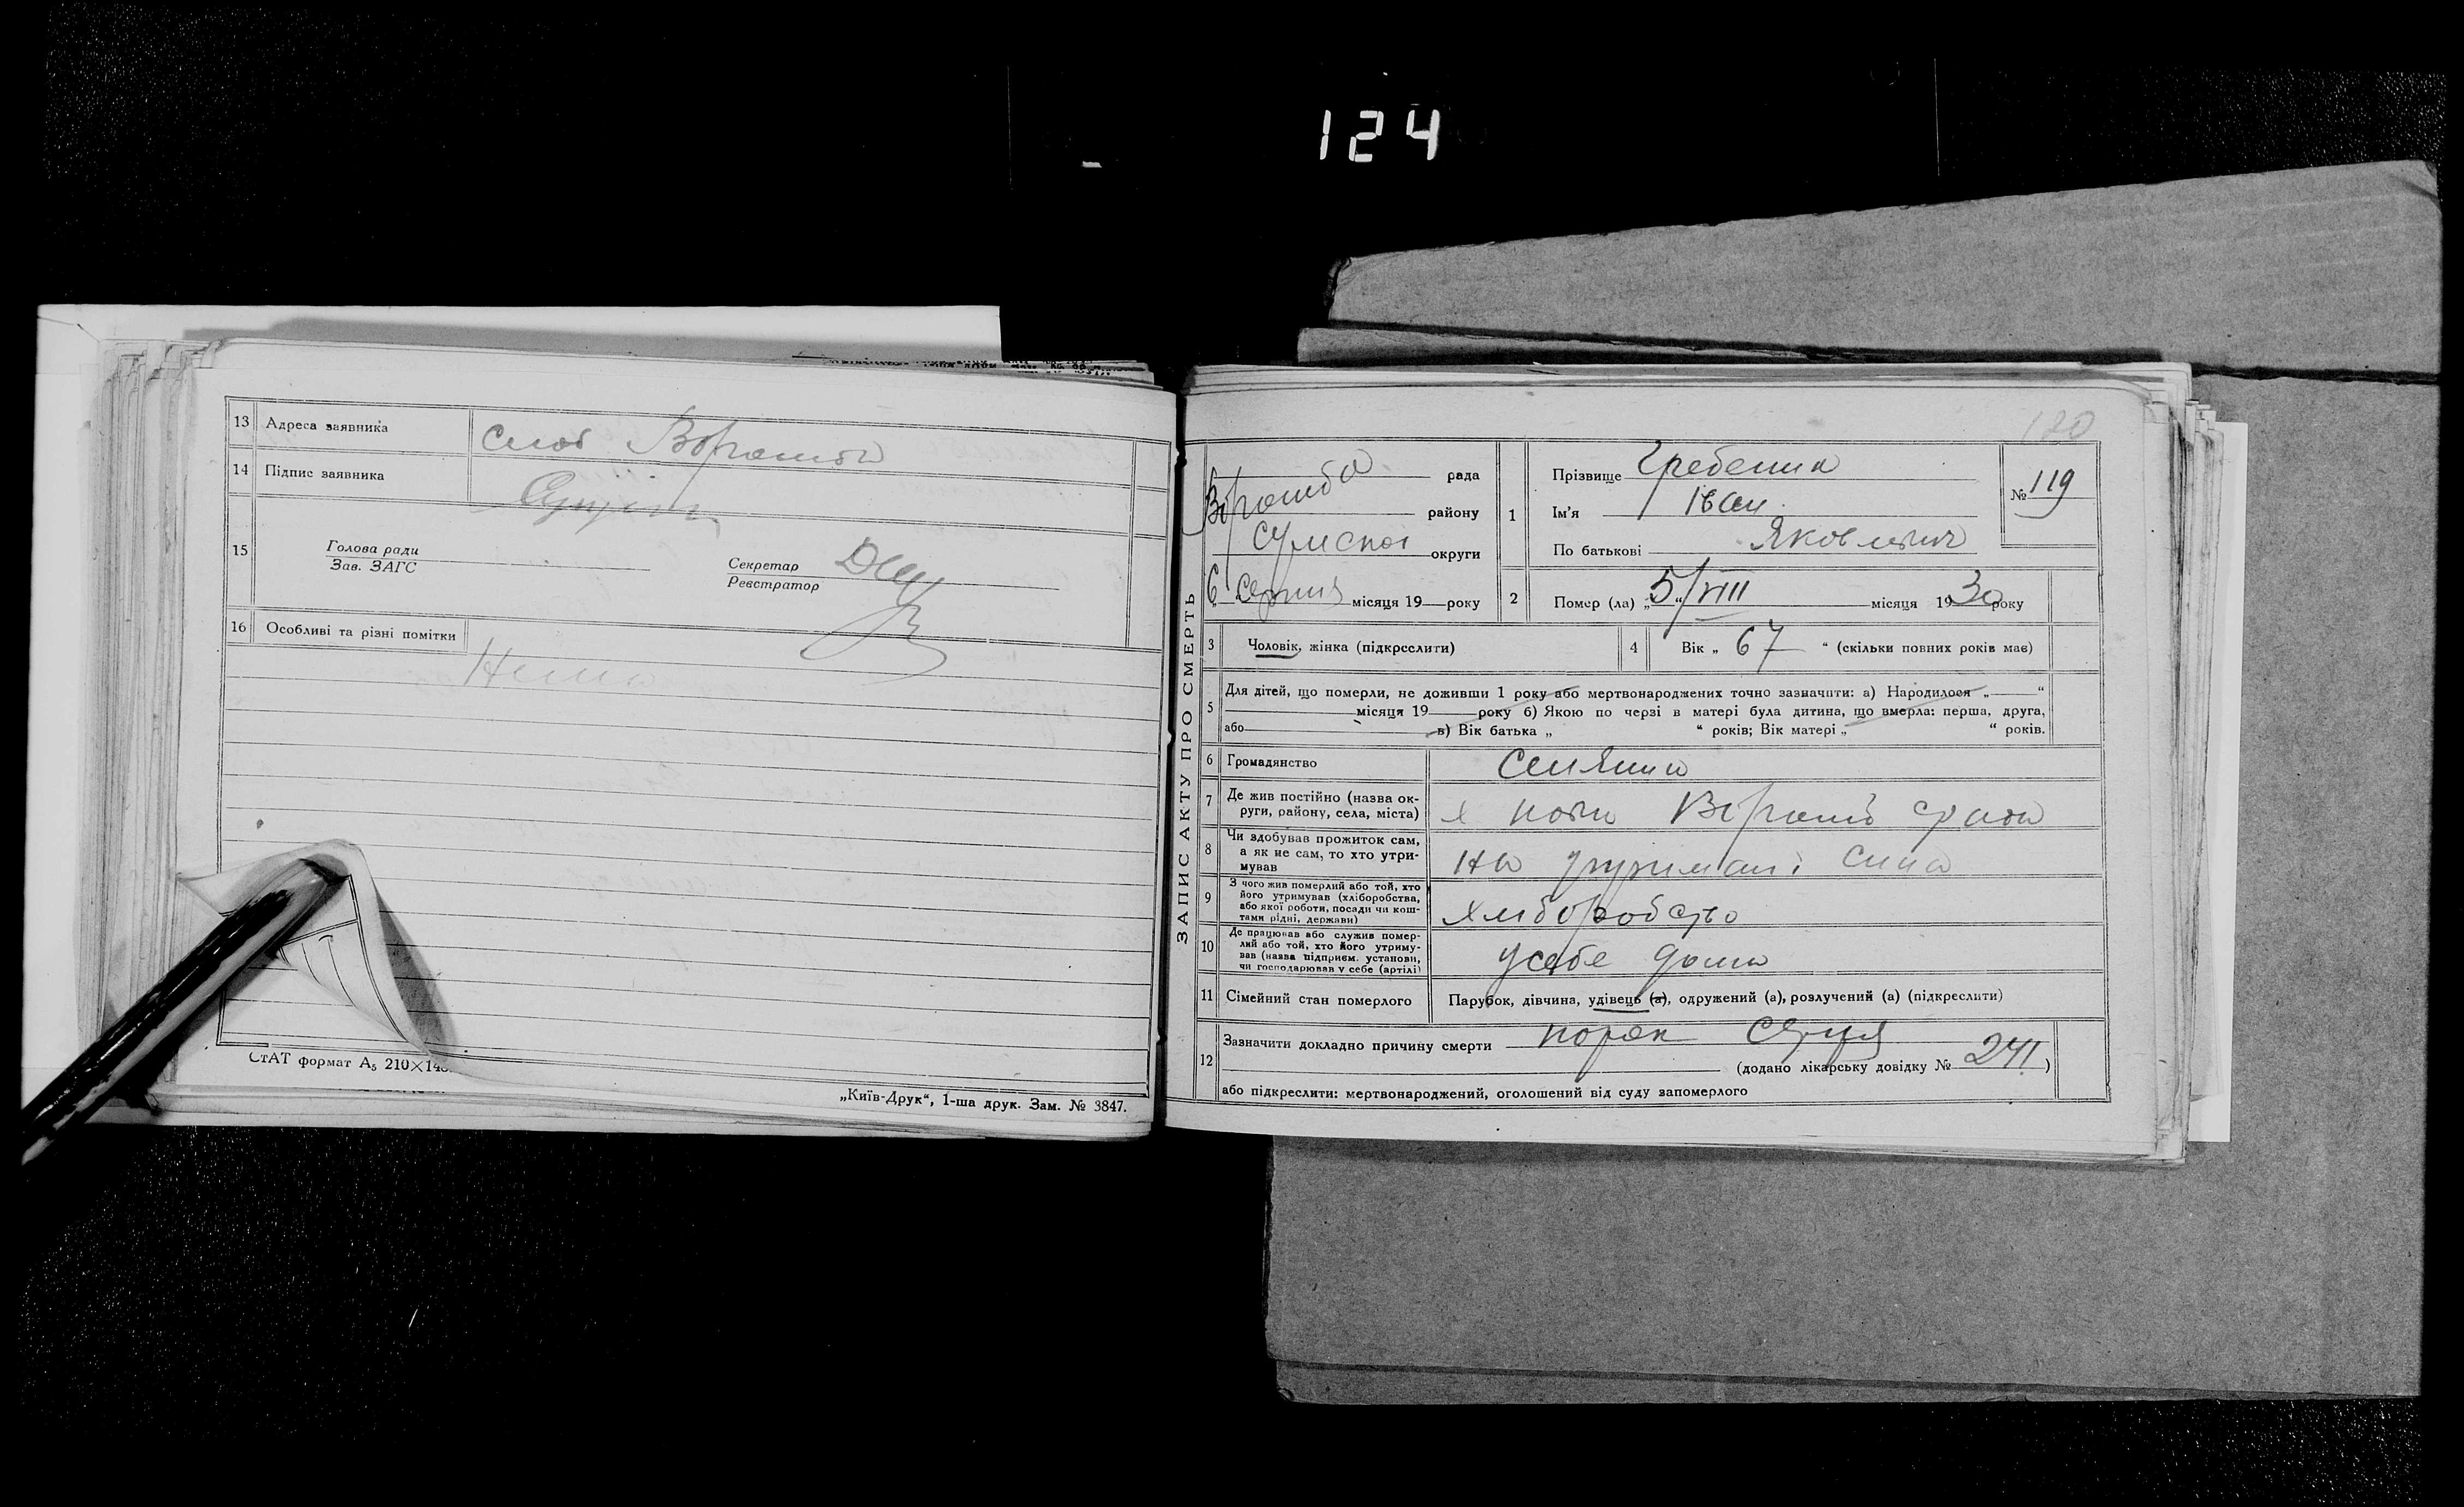 124
13 Адреса заявника
14 Підпис заявника
15 Голова ради
Зав. ЗАГС
Секретар
Реєстратор
16 Особливі та різні помітки
Нема
СтАТ формат А5 210×148
„Київ-Друк“, 1-ша друк. Зам. № 3847.
120
ЗАПИС АКТУ ПРО СМЕРТЬ
Ворожба рада
району
Сумської округи
6 серпня місяця 19 року
1 Прізвище Гребеник
Ім'я Іван
По батькові Якович
№ 119
2 Помер (ла) „5/VIII“ місяця 1930 року
3 Чоловік, жінка (підкреслити)
4 Вік „ 67 “ (скільки повних років має)
5 Для дітей, що померли, не доживши 1 року або мертвонароджених точно зазначити: а) Народилося „ “
місяця 19 року б) Якою по черзі в матері була дитина, що вмерла: перша, друга,
або в) Вік батька „ “ років; Вік матері „ “ років.
6 Громадянство
7 Де жив постійно (назва ок-
руги, району, села, міста)
8 Чи здобував прожиток сам,
а як не сам, то хто утри-
мував
на утримані сина
9 З чого жив померлий або той, хто
його утримував (хліборобства,
або якої роботи, посади чи кош-
тами рідні, держави)
хліборобство
10 Де працював або служив помер-
лий або той, хто його утриму-
вав (назва підприєм. установи,
чи господарював у себе (артілі)
у себе дома
11 Сімейний стан померлого
Парубок, дівчина, удівець (а), одружений (а), розлучений (а) (підкреслити)
12 Зазначити докладно причину смерти порок серця
(додано лікарську довідку № 241)
або підкреслити: мертвонароджений, оголошений від суду запомерлого